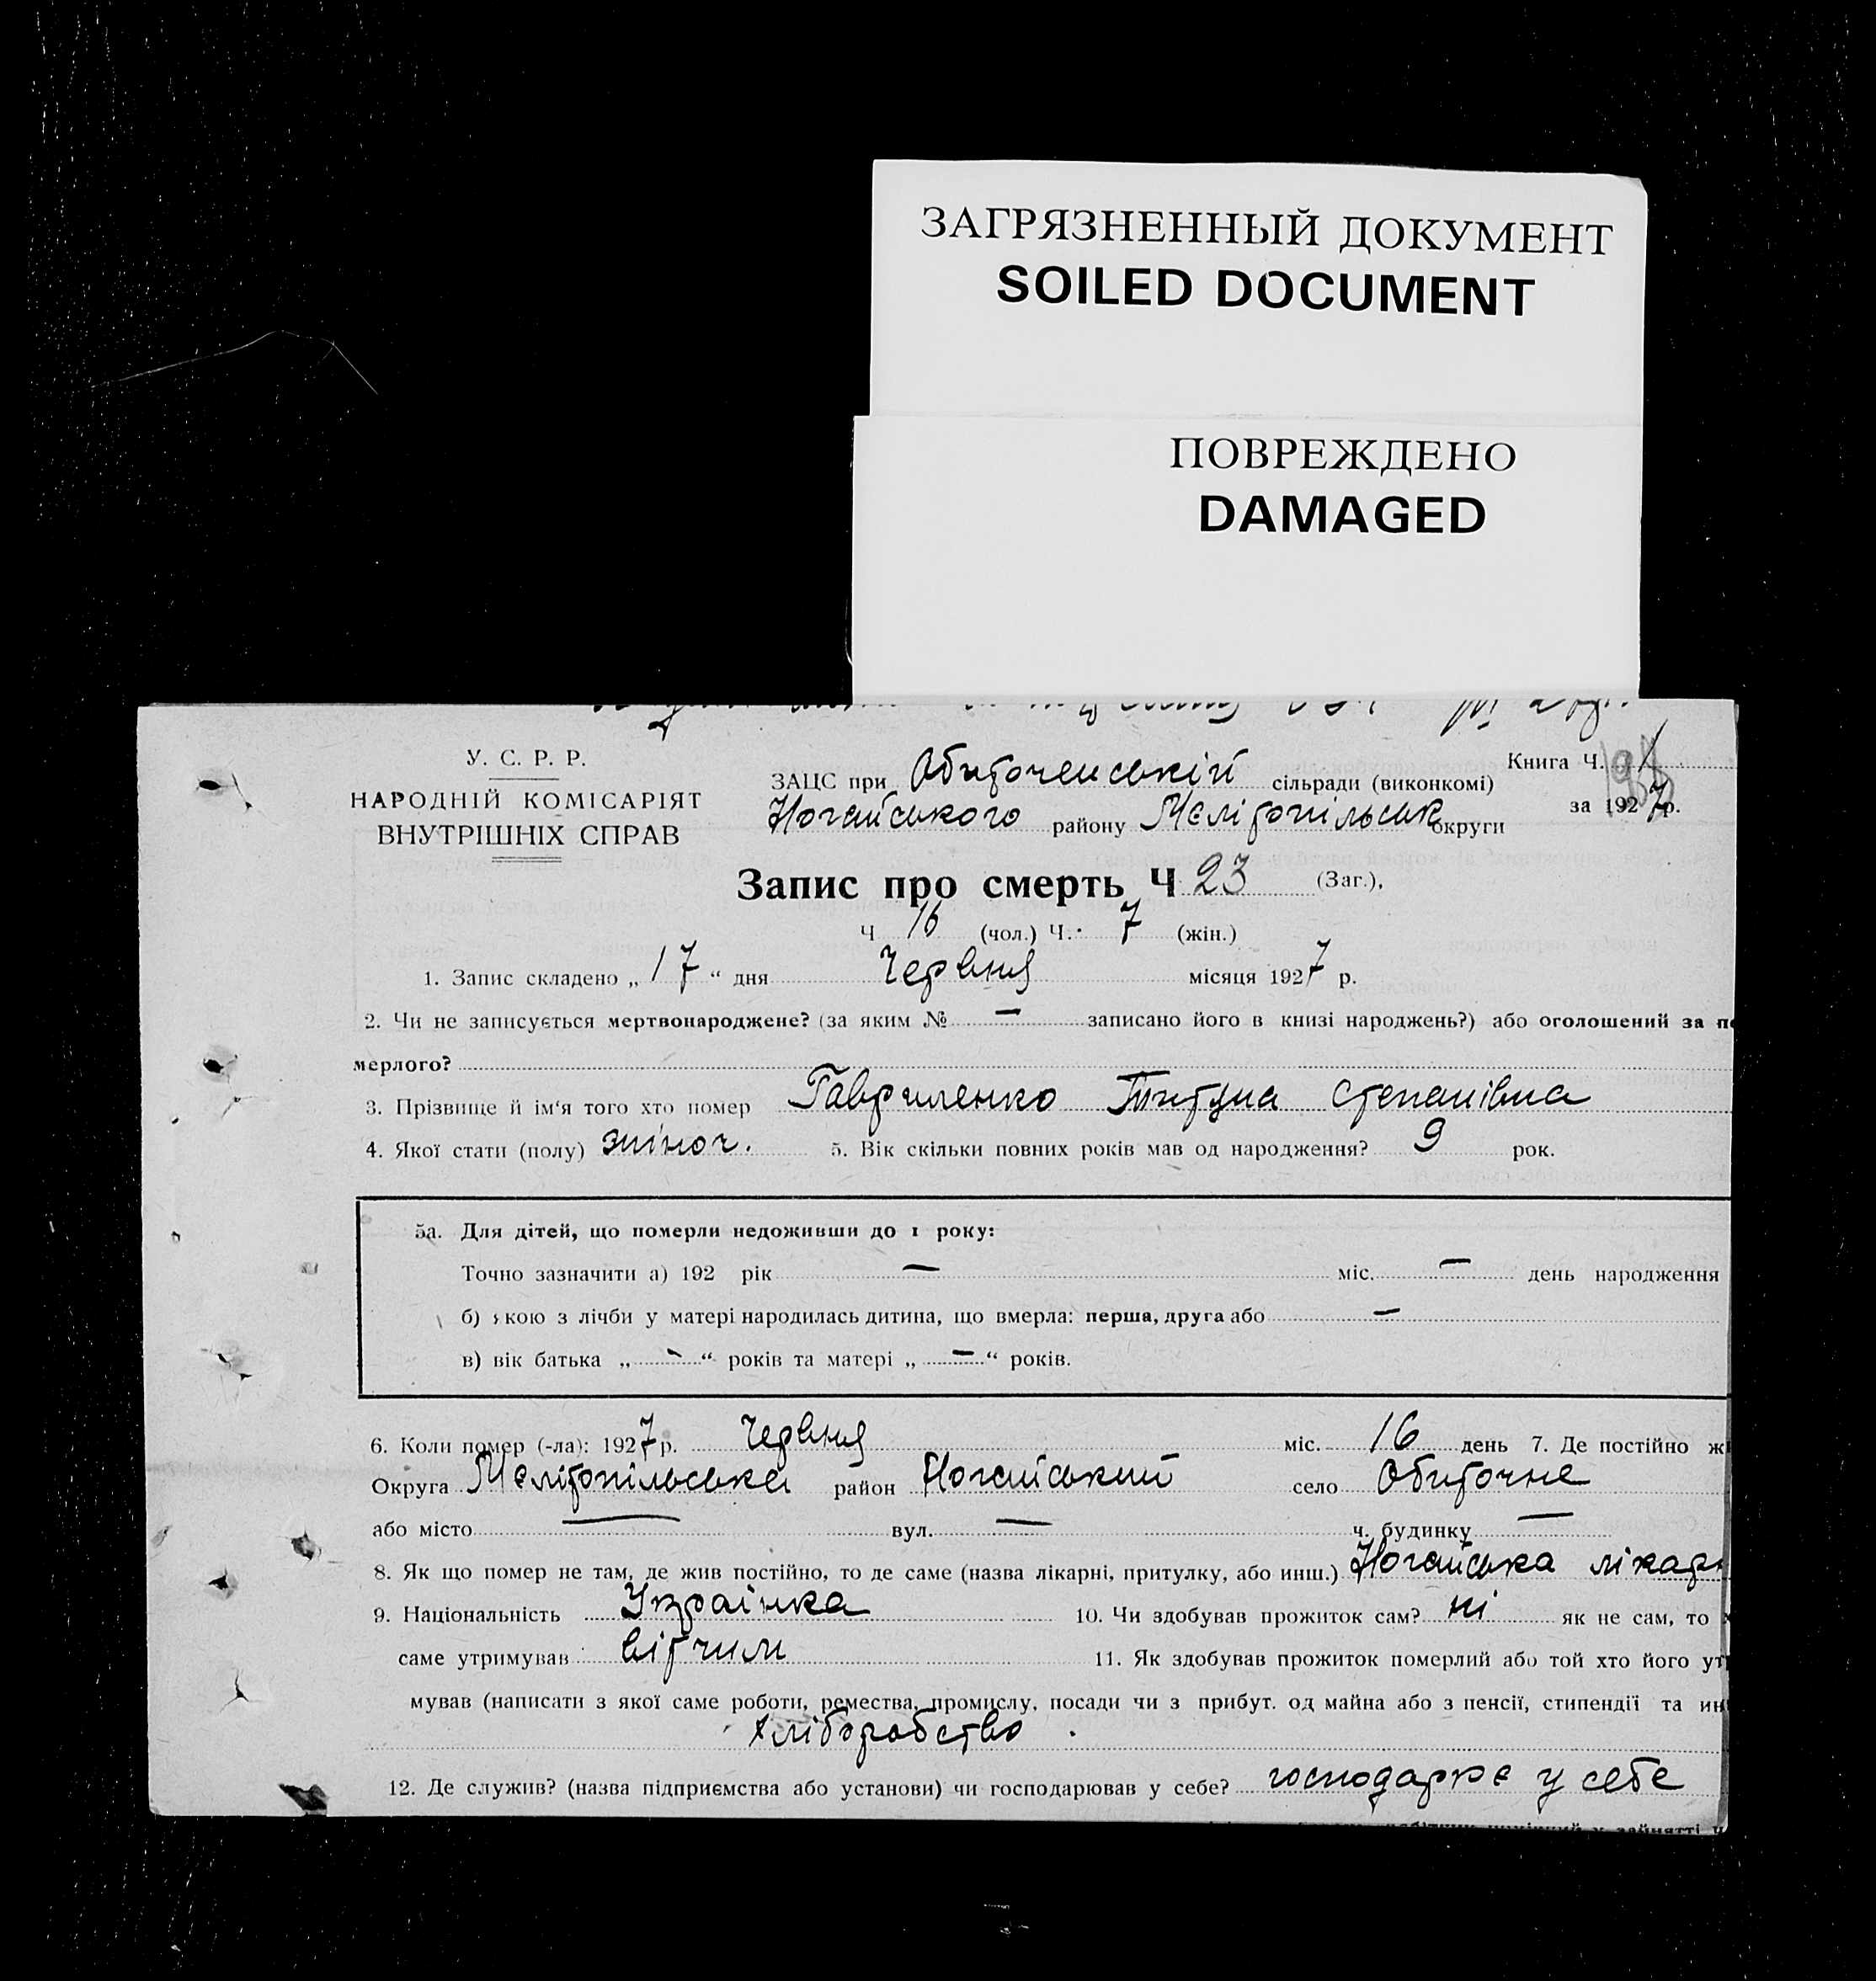 ЗАГРЯЗНЕННЫЙ ДОКУМЕНТ
SOILED DOCUMENT
ПОВРЕЖДЕНО
DAMAGED
У. С. Р. Р.
НАРОДНІЙ КОМІСАРІЯТ
ВНУТРІШНІХ СПРАВ
ЗАЦС при Обиточенській сільради (виконкомі)
Ногайського району Мелітопільськ округи
Книга Ч.
за 1927 р.
Запис про смерть Ч 23 (Заг.),
Ч 16 (чол.) Ч. 7 (жін.)
1. Запис складено „17“ дня Червня місяця 1927 р.
2. Чи не записується мертвонароджене? (за яким № — записано його в книзі народжень?) або оголошений за по
мерлого?
3. Прізвище й ім'я того хто помер Гавриленко Степанівна
4. Якої стати (полу) жіноч. 5. Вік скільки повних років мав од народження? 9 рок.
5а. Для дітей, що померли недоживши до 1 року:
Точно зазначити а) 192 рік — міс. — день народження
б) якою з лічби у матері народилась дитина, що вмерла: перша, друга або —
в) вік батька „—“ років та матері „—“ років.
6. Коли помер (-ла): 1927 р. Червня міс. 16 день 7. Де постійно жи
Округа Мелітопільська район Ногайський село Обиточне
або місто — вул. — ч. будинку —
8. Як що помер не там, де жив постійно, то де саме (назва лікарні, притулку, або инш.) Ногайська лікарн
9. Національність Українка 10. Чи здобував прожиток сам? ні як не сам, то х
саме утримував вітчим 11. Як здобував прожиток померлий або той хто його утр
мував (написати з якої саме роботи, ремества, промислу, посади чи з прибут. од майна або з пенсії, стипендії та ин
хліборобство.
12. Де служив? (назва підприємства або установи) чи господарював у себе? господарює у себе